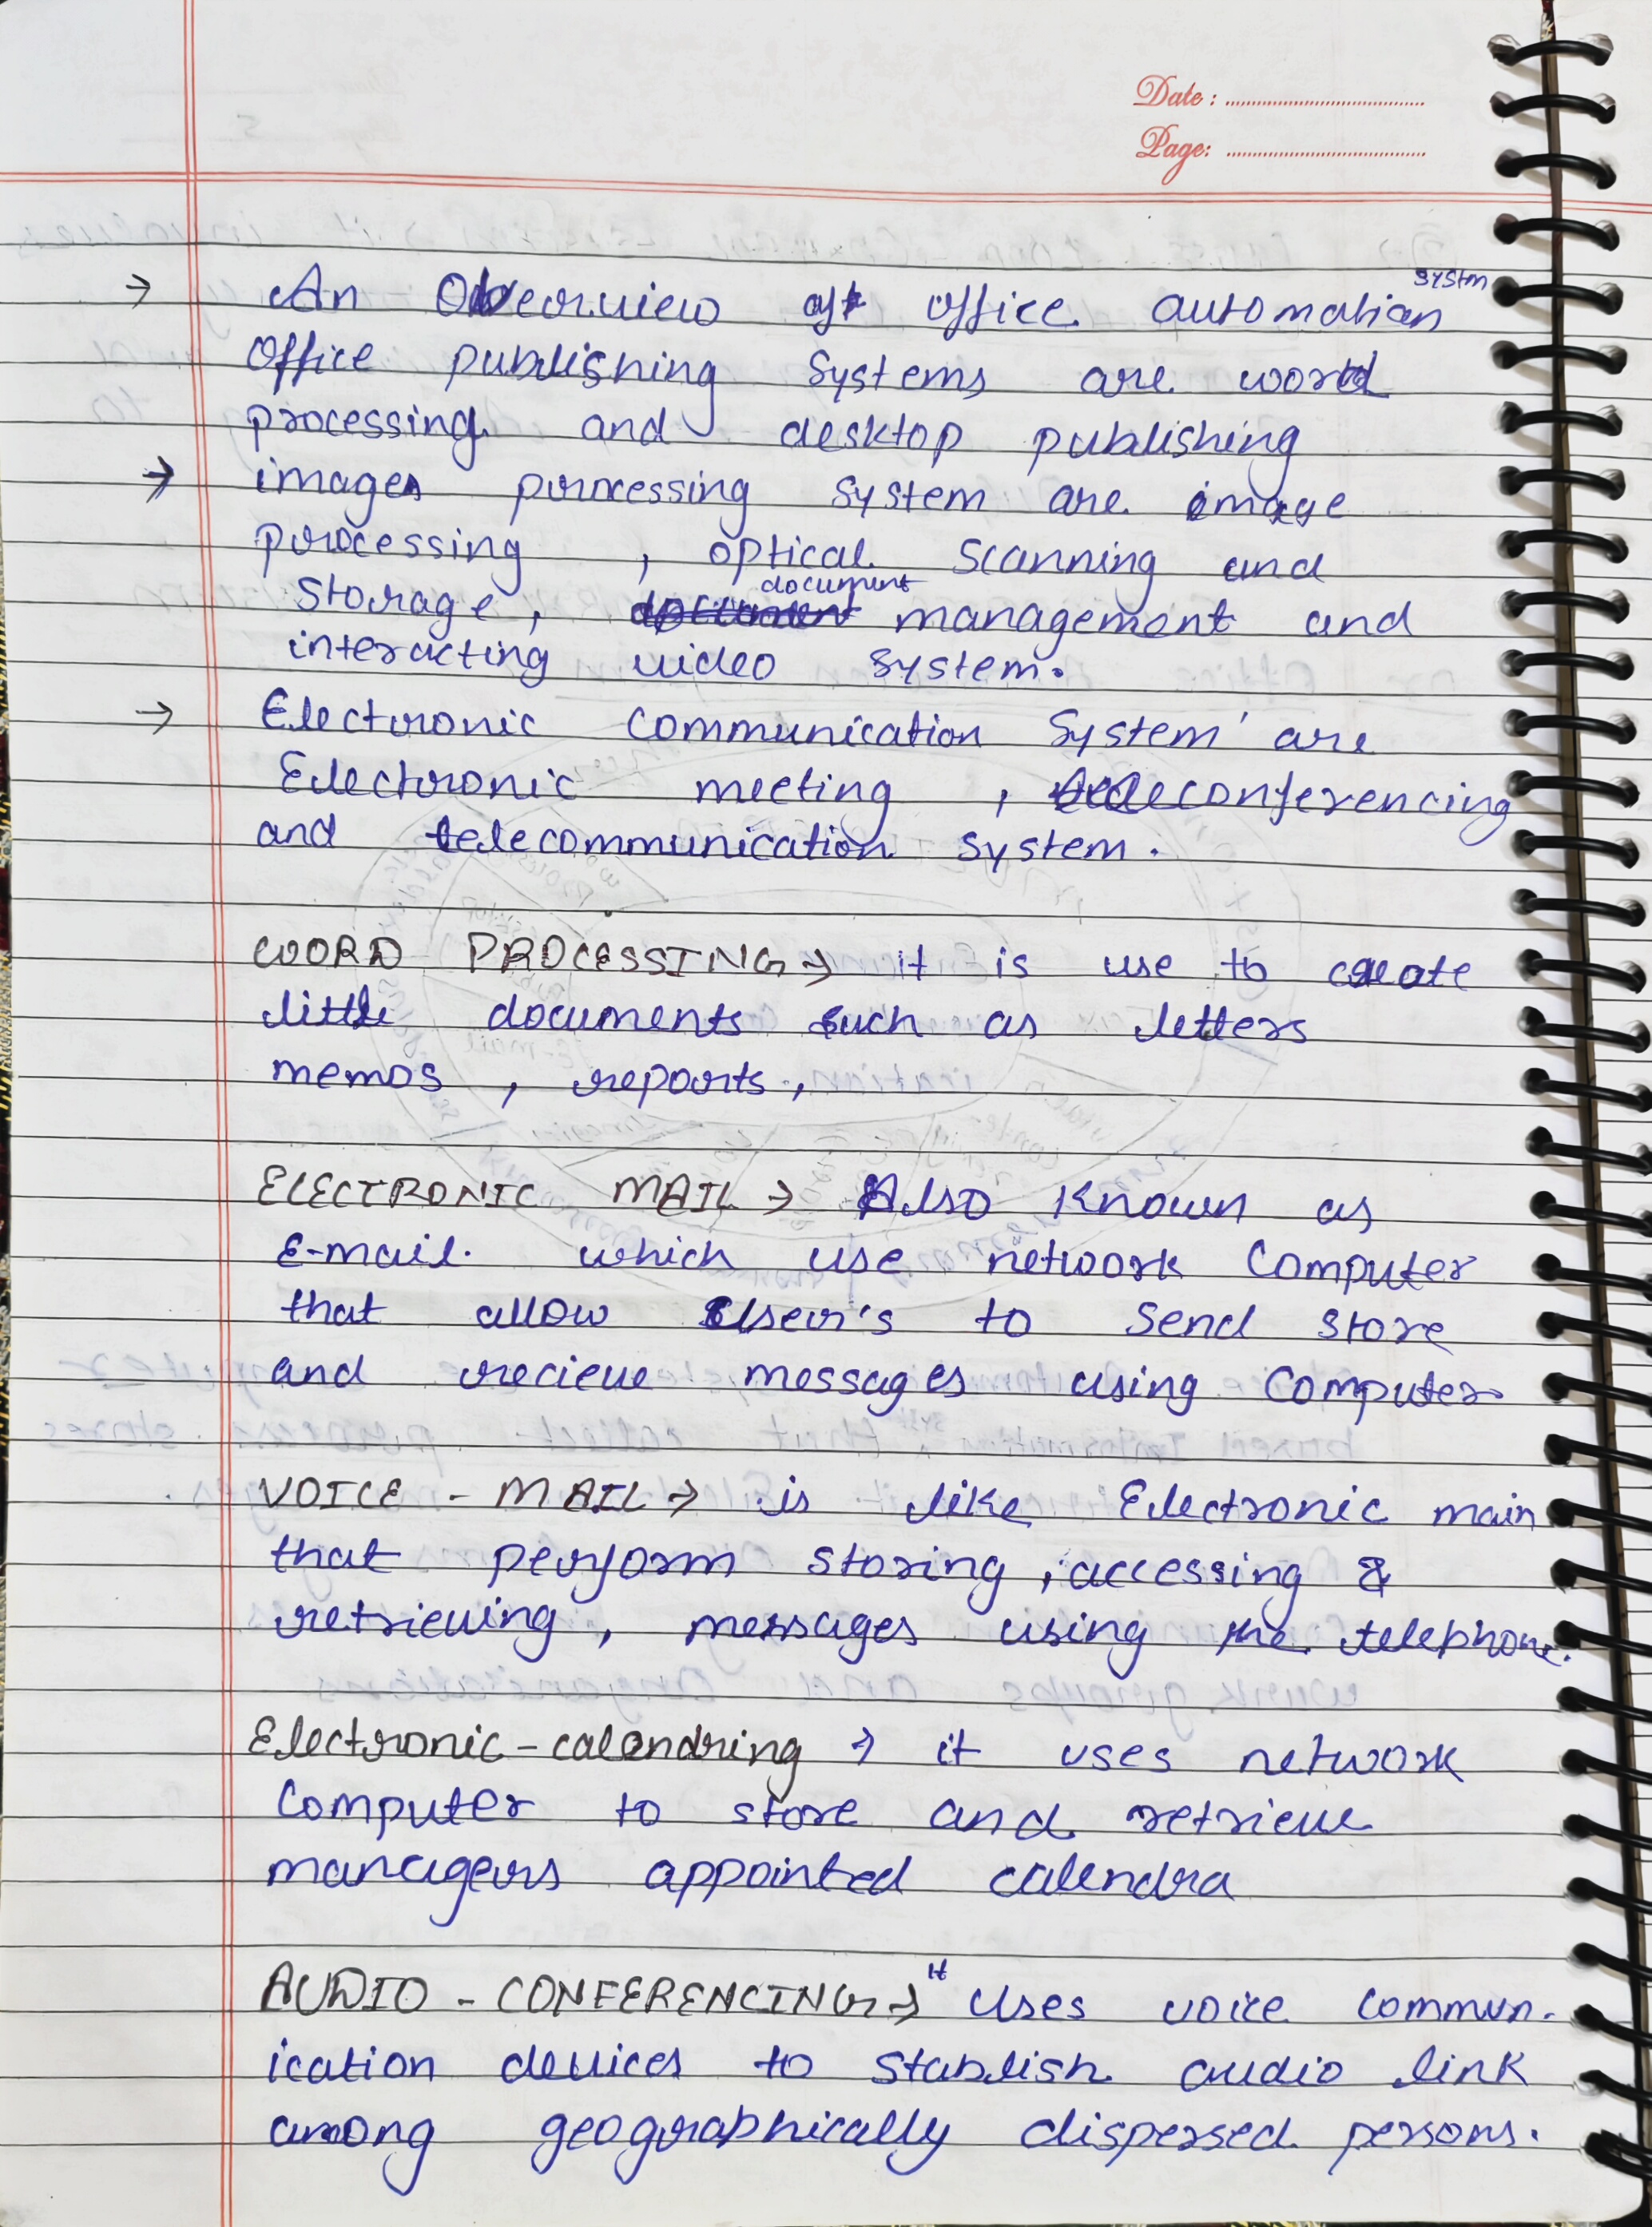 Date :
Page:
→ An Overview of office automation system
Office publishing systems are word
processing and desktop publishing
→ images processing system are image
processing , optical scanning and
storage , document management and
interacting video system.
→ Electronic communication system are
Electronic meeting , teleconferencing
and telecommunication system .
WORD PROCESSING → it is use to create
little documents such as letters
memos , reports ,
ELECTRONIC MAIL → Also known as
E-mail. which use network computer
that allow User's to send store
and recieve messages using computer
VOICE - MAIL → is like Electronic main
that perform storing , accessing &
retrieving , messages using the telephone.
Electronic-calendring → it uses network
computer to store and retrieve
managers appointed calendra
AUDIO - CONFERENCING → It uses voice commun.
ication devices to stablish audio link
among geographically dispersed persons.